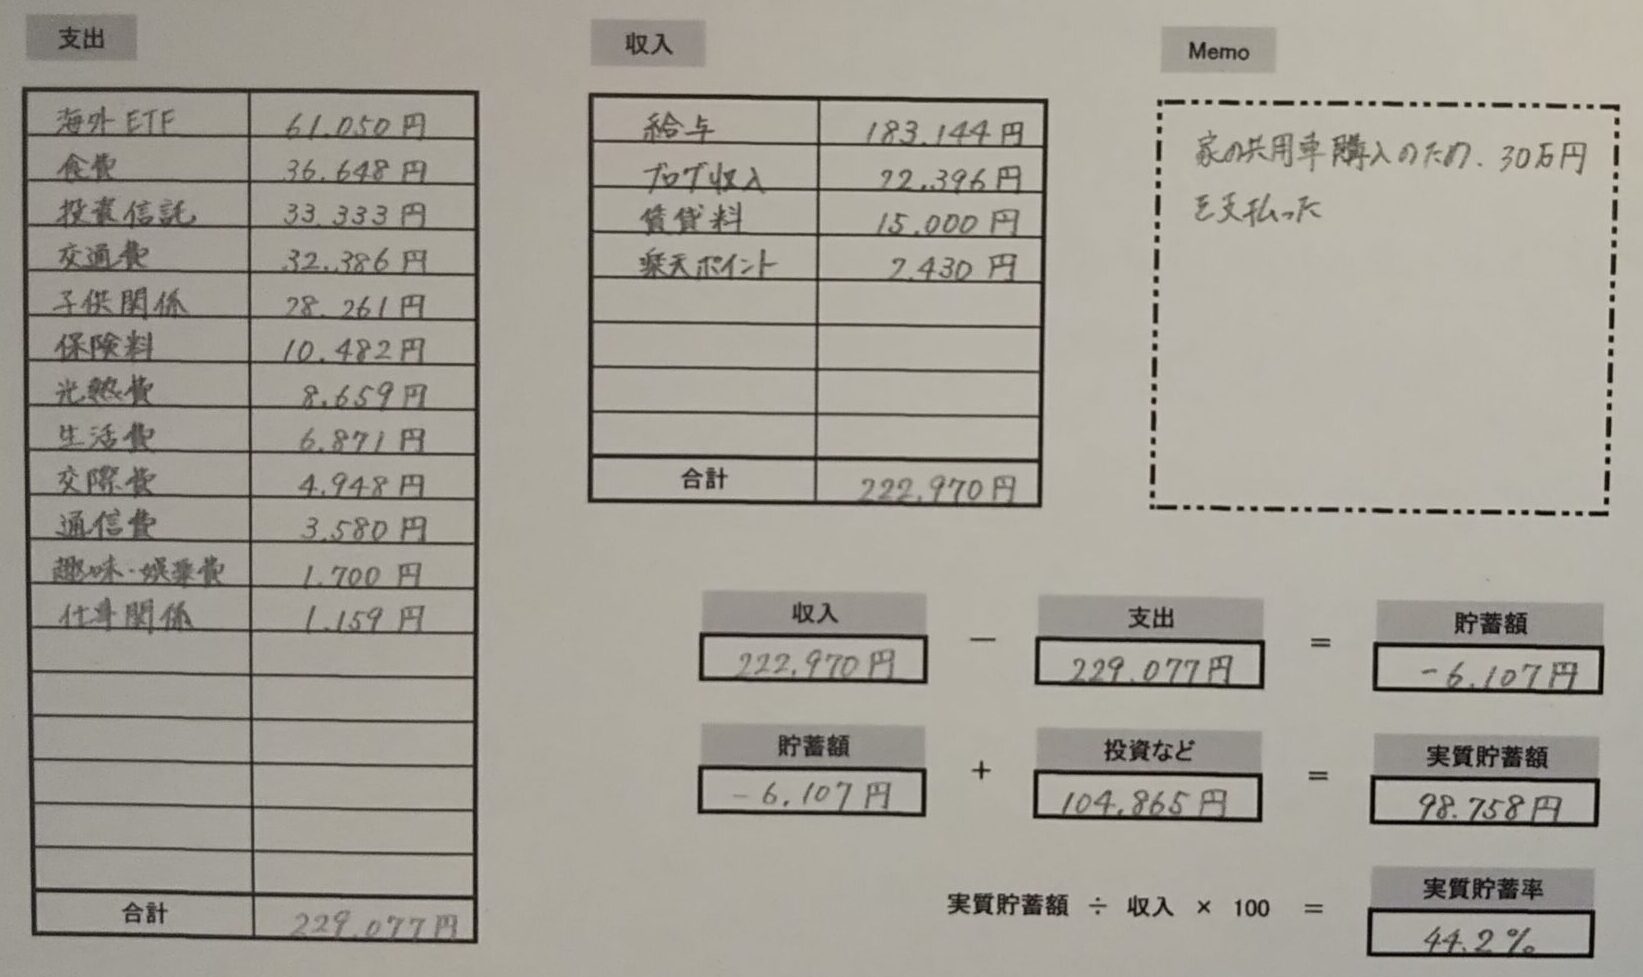 支出
海外ETF 61.050円
食費 36.648円
投資信託 33.333円
交通費 32.386円
子供関係 28.261円
保険料 10.482円
光熱費 8.659円
生活費 6.871円
交際費 4.948円
通信費 3.580円
趣味・娯楽費 1.700円
仕事関係 1.159円
合計 229.077円
収入
給与 183.144円
ブログ収入 22.396円
賃貸料 15.000円
楽天ポイント 2.430円
合計 222.970円
Memo
家の共用車購入のため、30万円
を支払った
収入 支出 貯蓄額
222.970円 － 229.077円 ＝ -6.107円
貯蓄額 投資など 実質貯蓄額
-6.107円 ＋ 104.865円 ＝ 98.758円
実質貯蓄率
実質貯蓄額 ÷ 収入 × 100 ＝ 44.2%